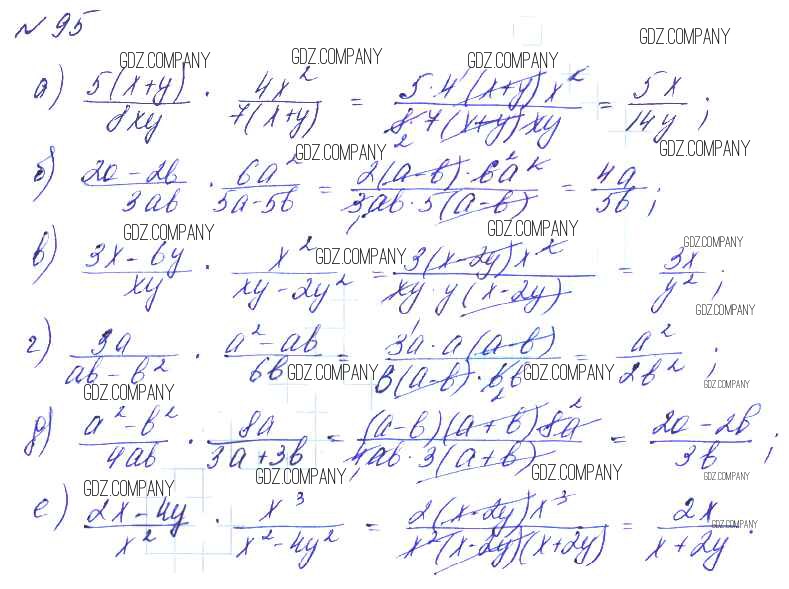 № 95
GDZ.COMPANY GDZ.COMPANY GDZ.COMPANY GDZ.COMPANY
а) 5(x+y)/8xy · 4x²/7(x+y) = 5·4(x+y)x²/8·7(x+y)xy = 5x/14y ;
GDZ.COMPANY GDZ.COMPANY
б) 2a-2b/3ab · 6a²/5a-5b = 2(a-b)·6a²/3ab·5(a-b) = 4a/5b ;
GDZ.COMPANY GDZ.COMPANY GDZ.COMPANY GDZ.COMPANY
в) 3x-6y/xy · x²/xy-2y² = 3(x-2y)x²/xy·y(x-2y) = 3x/y² ;
GDZ.COMPANY
г) 3a/ab-b² · a²-ab/6b = 3a·a(a-b)/b(a-b)·6b = a²/2b² ;
GDZ.COMPANY GDZ.COMPANY GDZ.COMPANY GDZ.COMPANY
д) a²-b²/4ab · 8a/3a+3b = (a-b)(a+b)8a/4ab·3(a+b) = 2a-2b/3b ;
GDZ.COMPANY GDZ.COMPANY GDZ.COMPANY GDZ.COMPANY
е) 2x-4y/x² · x³/x²-4y² = 2(x-2y)x³/x²(x-2y)(x+2y) = 2x/x+2y .
GDZ.COMPANY